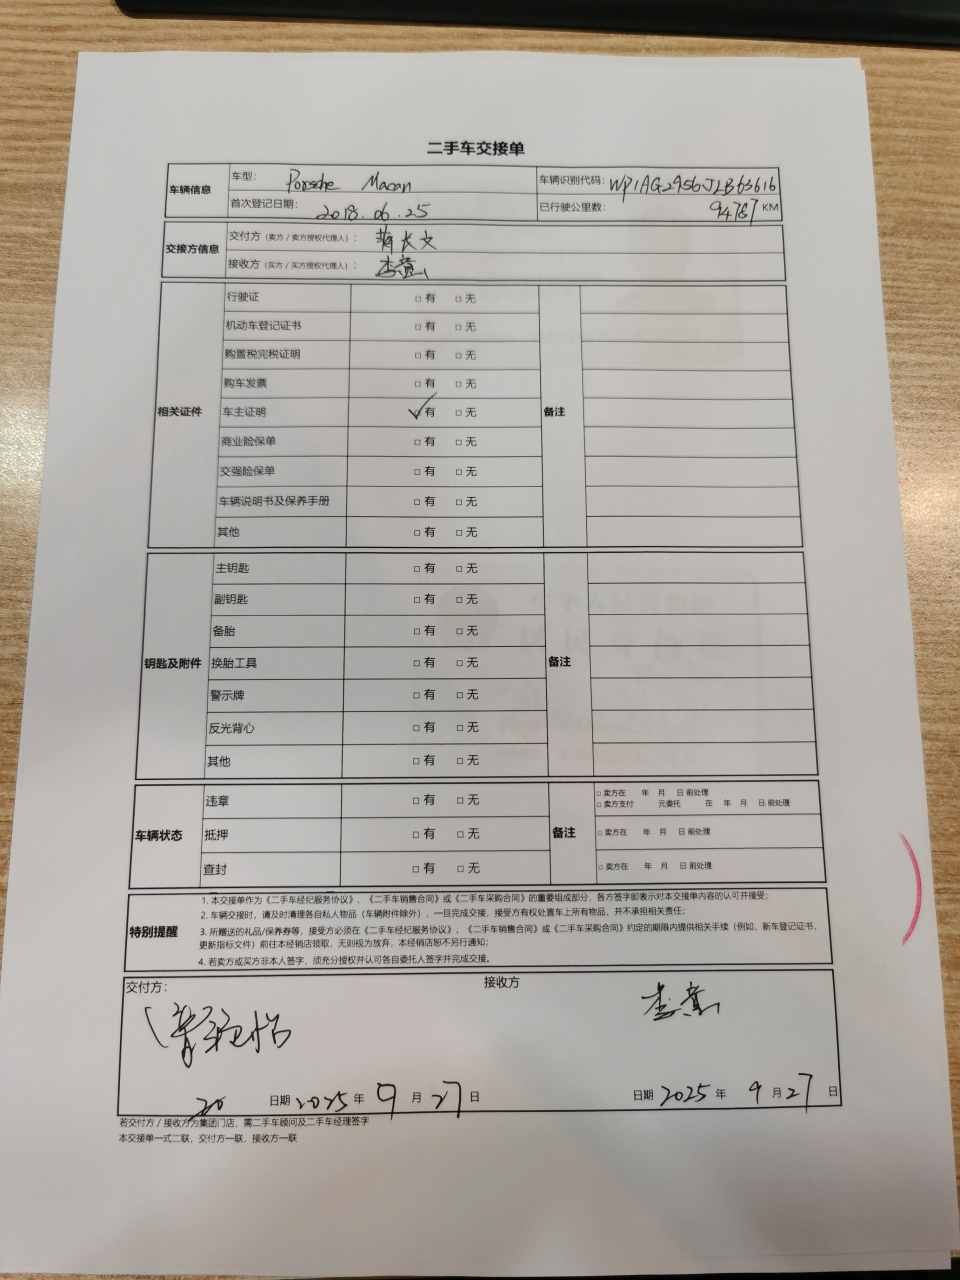 二手车交接单
车辆信息
车型: Porsche Macan
车辆识别代码: WP1AG2956JLB63616
首次登记日期: 2018.06.25
已行驶公里数: 94787 KM
交接方信息
交付方（卖方 / 卖方授权代理人）: 长文
接收方（买方 / 买方授权代理人）: 李
相关证件
行驶证 □ 有 □ 无
机动车登记证书 □ 有 □ 无
购置税完税证明 □ 有 □ 无
购车发票 □ 有 □ 无
车主证明 ✓ 有 □ 无
备注
商业险保单 □ 有 □ 无
交强险保单 □ 有 □ 无
车辆说明书及保养手册 □ 有 □ 无
其他 □ 有 □ 无
钥匙及附件
主钥匙 □ 有 □ 无
副钥匙 □ 有 □ 无
备胎 □ 有 □ 无
换胎工具 □ 有 □ 无
备注
警示牌 □ 有 □ 无
反光背心 □ 有 □ 无
其他 □ 有 □ 无
车辆状态
违章 □ 有 □ 无
□ 卖方在 年 月 日 前处理
□ 卖方支付 元委托 在 年 月 日 前处理
抵押 □ 有 □ 无
备注
□ 卖方在 年 月 日 前处理
查封 □ 有 □ 无
□ 卖方在 年 月 日 前处理
特别提醒
1. 本交接单作为《二手车经纪服务协议》、《二手车销售合同》或《二手车采购合同》的重要组成部分，各方签字即表示对本交接单内容的认可并接受；
2. 车辆交接时，请及时清理各自私人物品（车辆附件除外），一旦完成交接，接受方有权处置车上所有物品，并不承担相关责任；
3. 所赠送的礼品/保养券等，接受方必须在《二手车经纪服务协议》、《二手车销售合同》或《二手车采购合同》约定的期限内提供相关手续（例如，新车登记证书，
更新指标文件）前往本经销店领取，无则视为放弃，本经销店恕不另行通知；
4. 若卖方或买方非本人签字，须充分授权并认可各自委托人签字并完成交接。
交付方:
接收方
李
20 日期 2025 年 9 月 27 日
日期 2025 年 9 月 27 日
若交付方 / 接收方为集团门店，需二手车顾问及二手车经理签字
本交接单一式二联，交付方一联，接收方一联